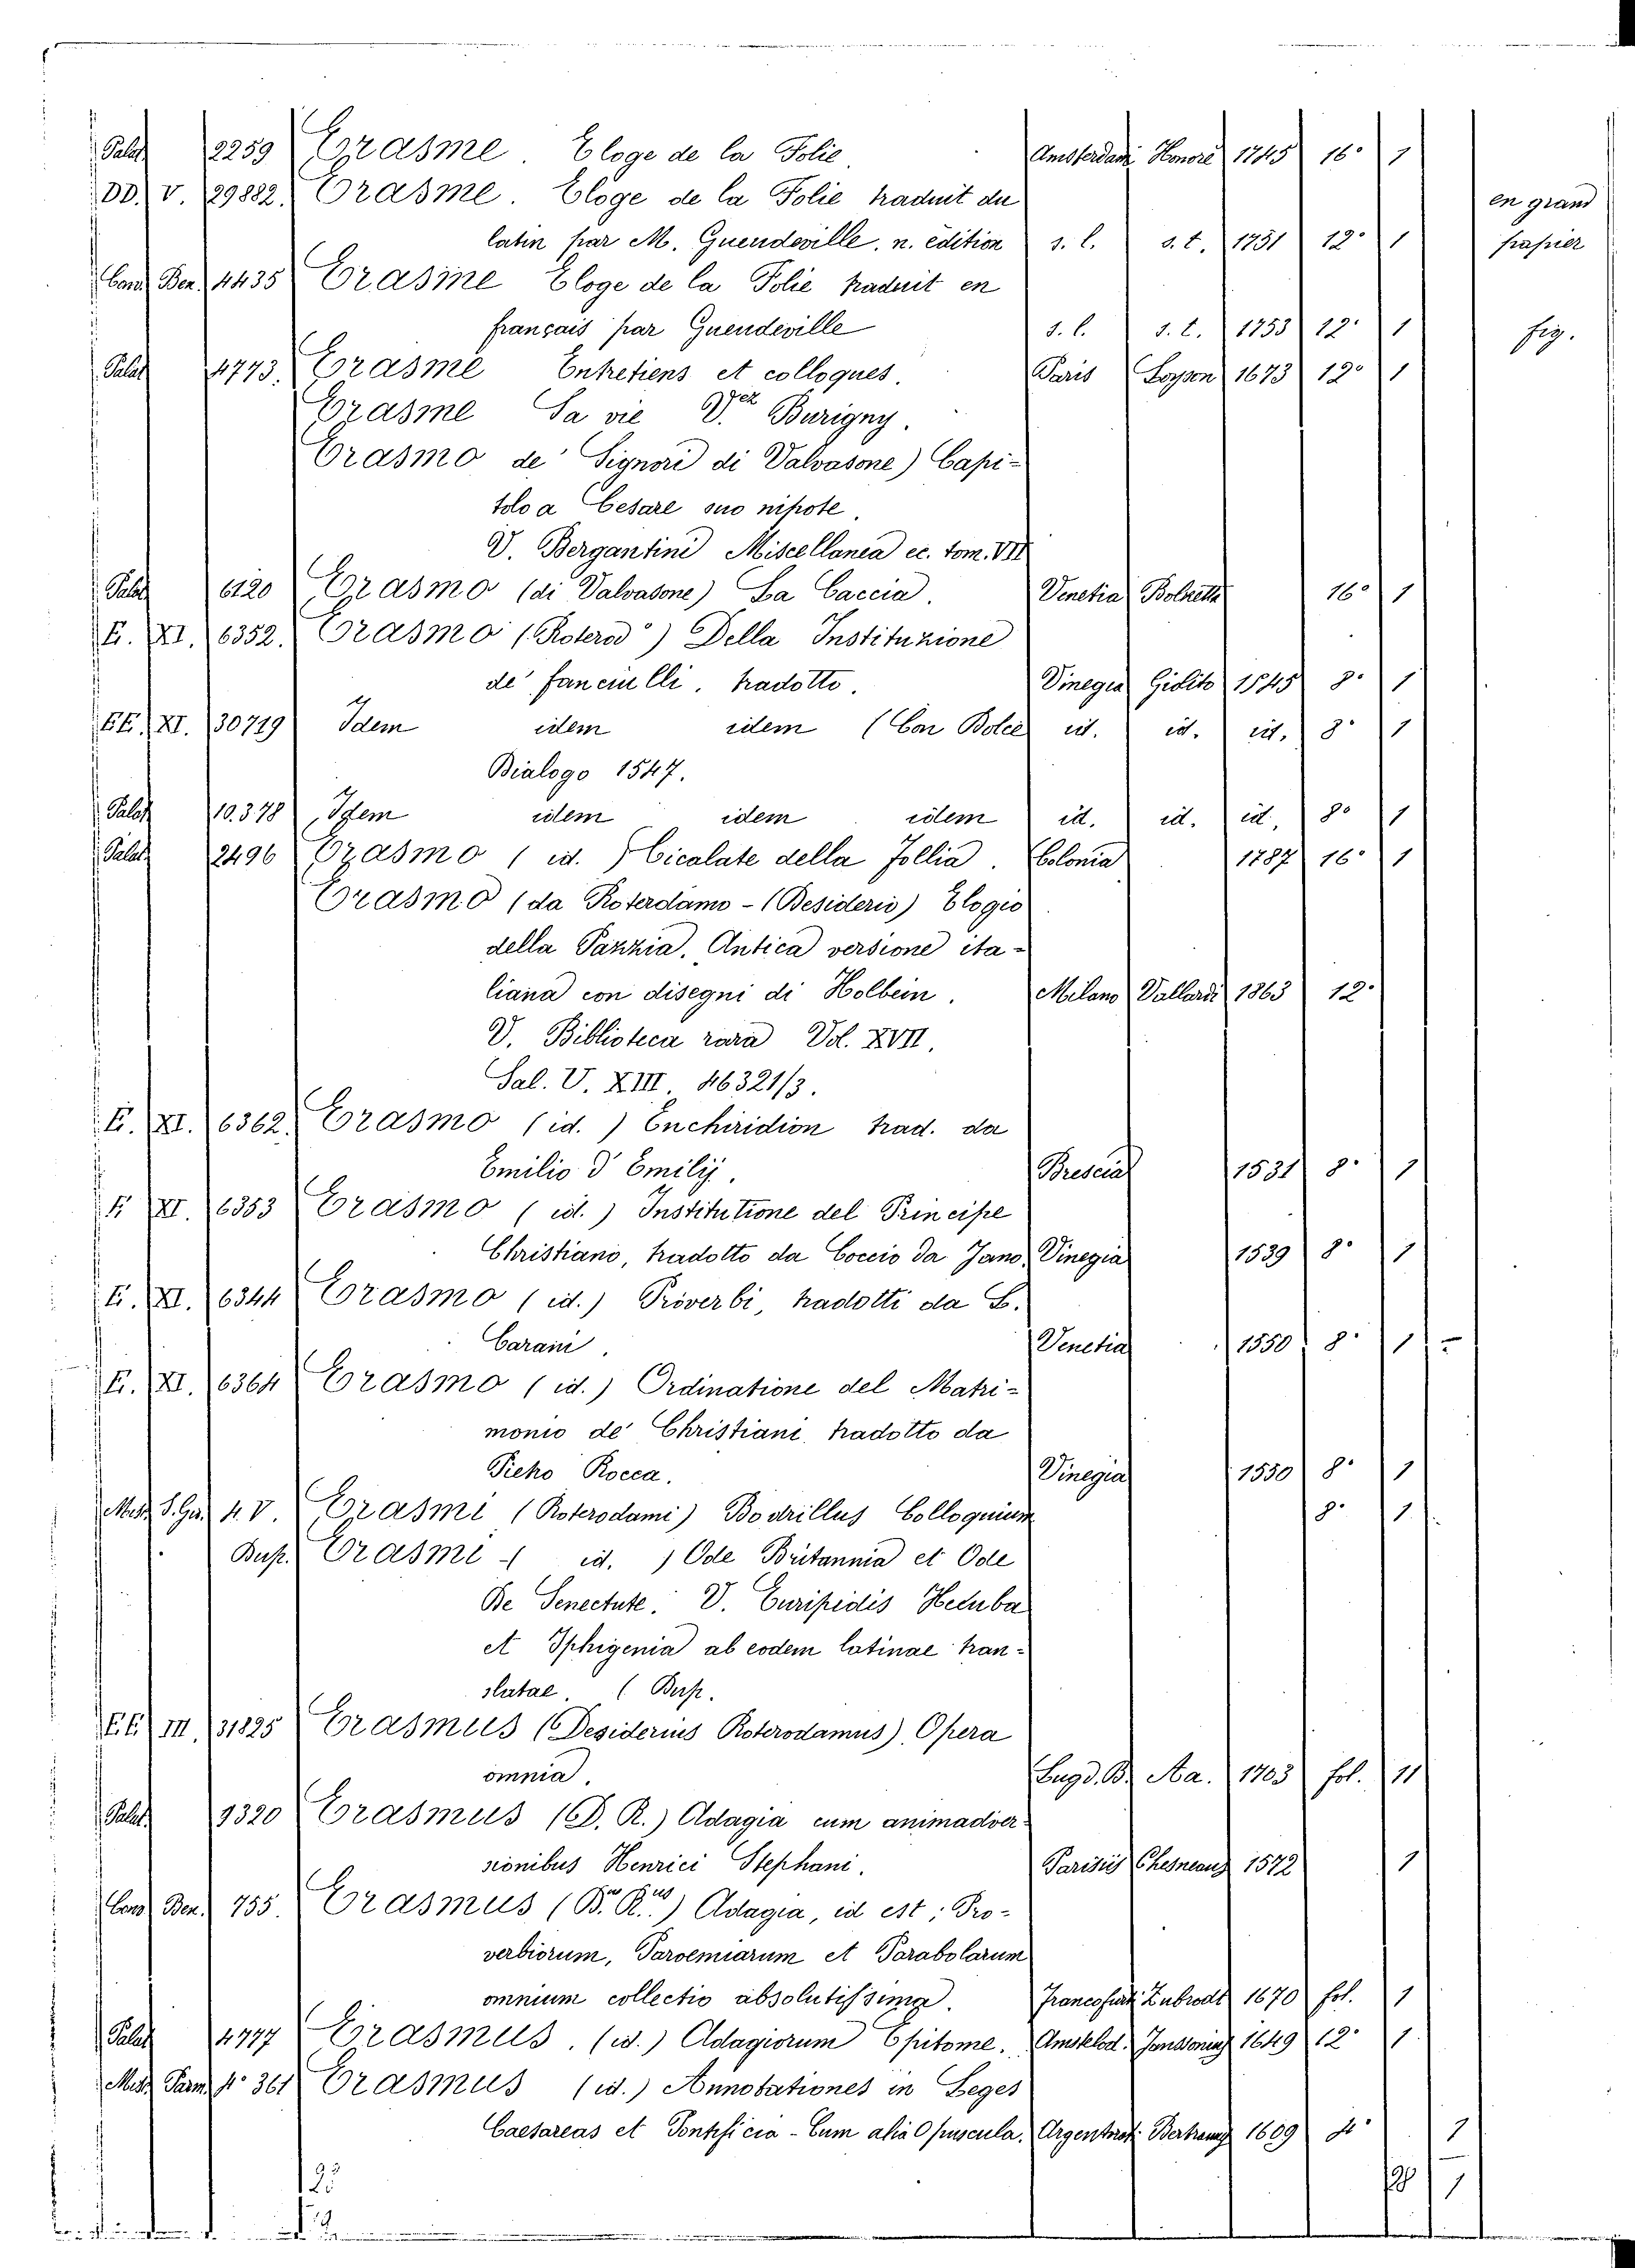 Palat 2259 Erasme. Eloge de la Folie Amsterdam Honoré 1745 16° 1
DD. V. 29882. Erasme. Eloge de la Folie traduit du en grand
latin par M. Gueudeville. n. edition s. l. s. t. 1751 12° 1 papier
Cons Ben. 4435 Erasme Eloge de la Folie traduit en
français par Gueudeville s. l. s. t. 1753 12° 1 fig.
Palat 4773. Erasme Entretiens et colloques. Paris Loyson 1673 12° 1
Erasme Sa vie V.ez Burigny.
Erasmo de' Signori di Valvasone) Capi-
tolo a Cesare suo nipote.
V. Bergantini Miscellanea ec. tom. VII
Palat 6120 Erasmo (di Valvasone) La Caccia. Venetia Bolzetta 16° 1
E. XI. 6352. Erasmo (Roterod°) Della Instituzione
de' fanciulli. tradotto. Vinegia Giolito 1545 8° 1
EE. XI. 30719 Idem idem idem (Con Dolce id. id. id. 8° 1
Dialogo 1547.
Palat 10.378 Idem idem idem idem id. id. id. 8° 1
Palat 2496 Erasmo (id.) Cicalate della follia. Colonia 1787 16° 1
Erasmo (da Roterdamo - (Desiderio) Elogio
della Pazzia. Antica versione ita-
liana con disegni di Holbein. Milano Vallardi 1863 12°
V. Biblioteca rara Vol. XVII.
Sal. V. XIII. 46321/3.
E. XI. 6362. Erasmo (id.) Enchiridion trad. da
Emilio d' Emilij. Brescia 1531 8° 1
E XI. 6353 Erasmo (id.) Institutione del Principe
Christiano, tradotto da Coccio da Jano. Vinegia 1539 8° 1
E. XI. 6344 Erasmo (id.) Proverbi, tradotti da L.
Carani. Venetia 1550 8° 1 -
E. XI. 6364 Erasmo (id.) Ordinatione del Matri-
monio de' Christiani tradotto da
Pietro Rocca. Vinegia 1550 8° 1
S. Ger. 4. V. Erasmi (Roterodami) Bodrillus Colloquium 8° 1
Dup. Erasmi - ( id. ) Ode Britannia et Ode
De Senectute. V. Euripidis Hecuba
et Iphigenia ab eodem latinae tran-
slatae. (Dup.
EE III 31825 Erasmus (Desiderius Roterodamus). Opera
omnia. Lugd. B. Aa. 1703 fol. 11
Palat. 1320 Erasmus (D. R.) Adagia cum animadver-
sionibus Henrici Stephani. Parisiis Chesneau 1572 1
Cons Ben. 755. Erasmus (D. R.us) Adagia, id est; Pro-
verbiorum, Paroemiarum et Parabolarum
omnium collectio absolutissima. Francofurti Zubrodt 1670 fol. 1
Palat 4777 Erasmus. (id.) Adagiorum Epitome. Amstelod. Janssonius 1649 12° 1
Parm. n° 361 Erasmus (id.) Annotationes in Leges
Caesareas et Pontificia - Cum alia Opuscula. Argentorat. Bertram 1609 4° 1